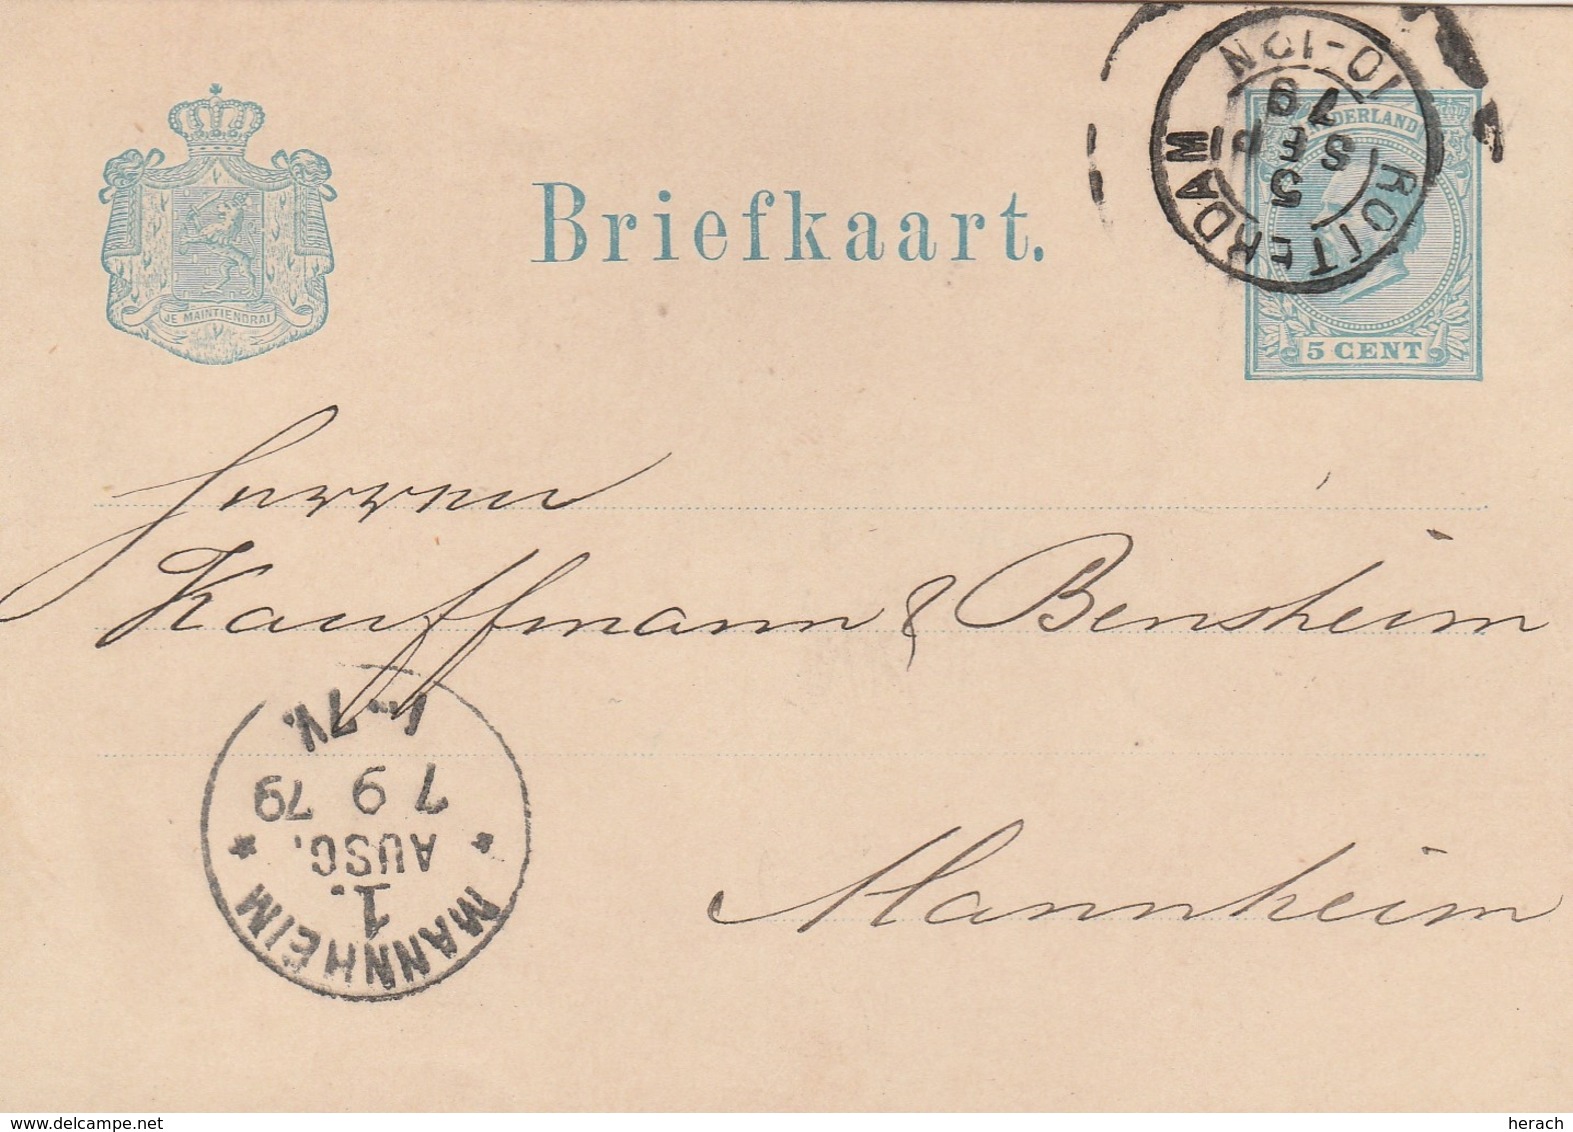 ROTTERDAM
5
SEP
79
10-12N
NEDERLAND
Briefkaart.
JE MAINTIENDRAI
5 CENT
Herren
Kauffmann & Bensheim
Mannheim
MANNHEIM
1.
AUSG.
7 9 79
7V.
delcampe.net
herach